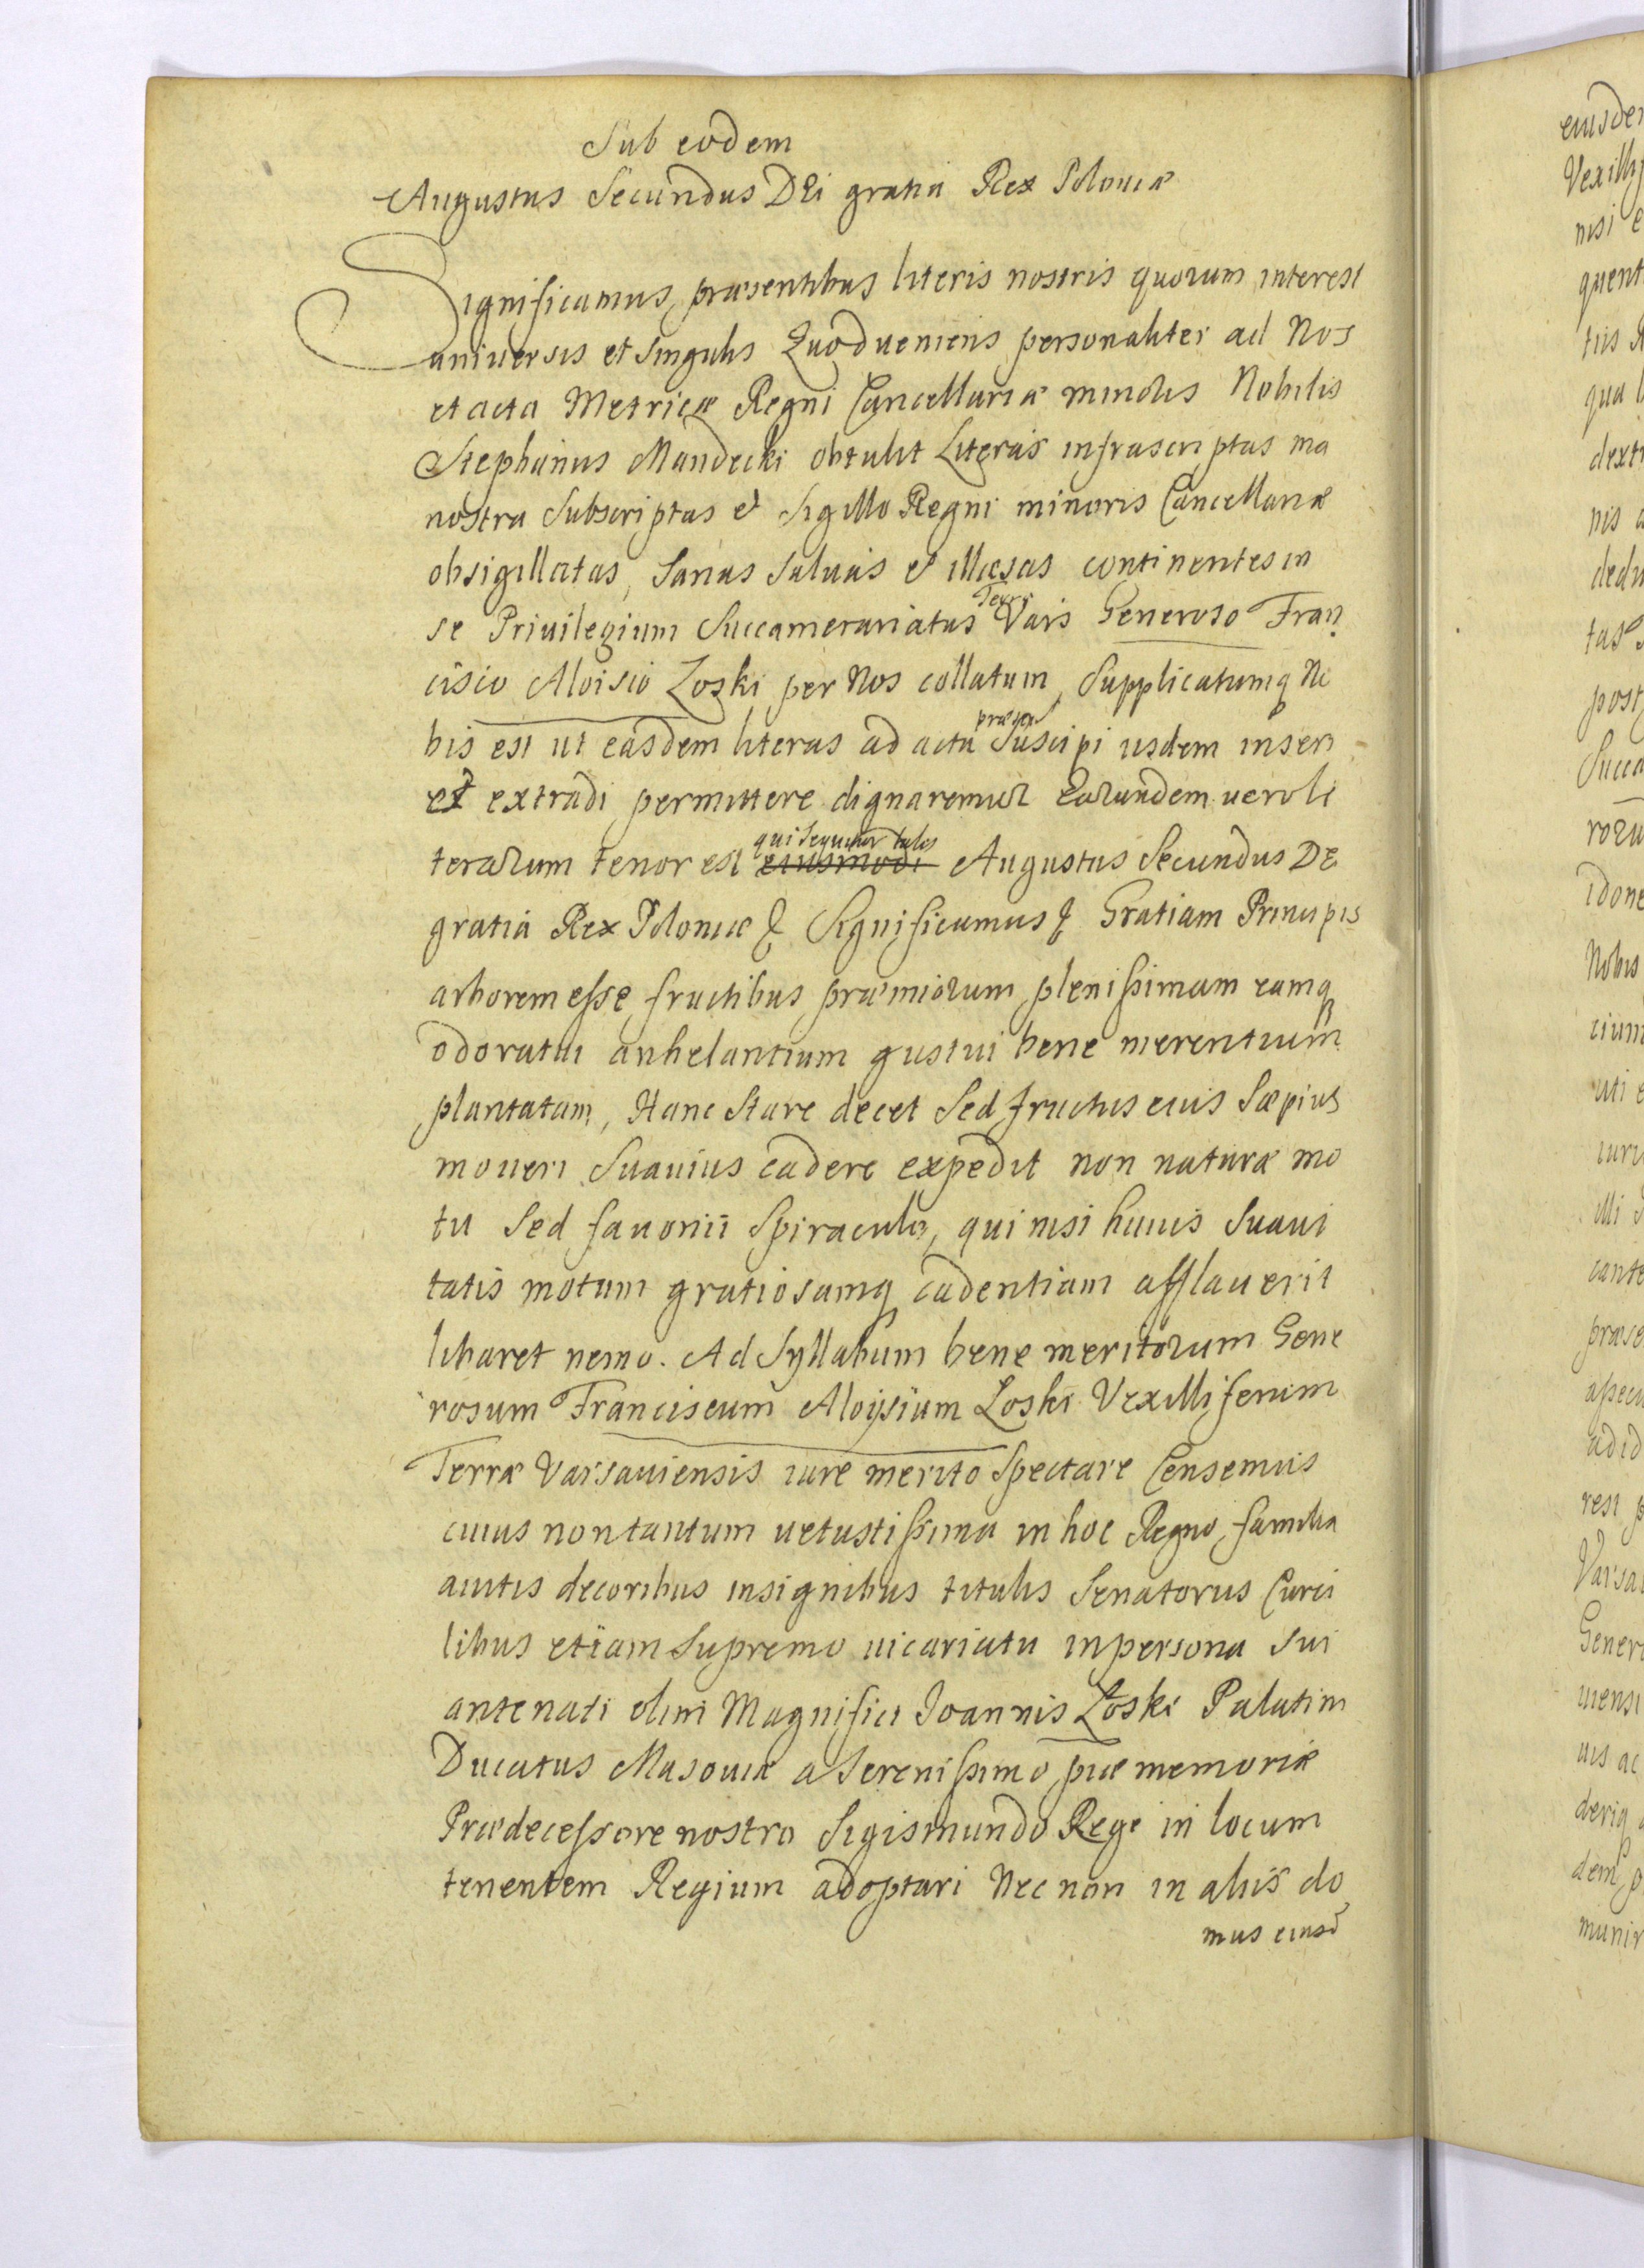 Sub eodem
Augustus Secundus DEi gratia Rex Poloniæ
Significamus præsentibus literis nostris quorum interest
universis et singulis Quod veniens personaliter ad Nos
et acta Metricæ Regni Cancellariæ minoris Nobilis
Stephanus Mandecki obtulit Literas infrascriptas ma
nostra Subscriptas et Sigillo Regni minoris Cancellariæ
obsigillatas, Sanas Salvas et illæsas continentes in
se Privilegium Succamerariatus Terræ Vars Generoso Fran
cisco Aloisio Łoski per Nos collatum, Supplicatumq No
bis est ut easdem literas ad acta præsen Suscipi iisdem inseri
et extradi permittere dignaremur Earundem vero li
terarum tenor est ~~eiusmodi~~ qui Sequitur talis Augustus Secundus DE
gratia Rex Poloniæ & Significamus & Gratiam Principis
arborem esse fructibus præmiorum plenissimam eamq
odoratui anhelantium gustui bene merentium
plantatam, Hanc Stare decet Sed fructus eius Sæpius
moveri Suavius cadere expedit non naturæ mo
tu Sed favonii Spiraculo, qui nisi huius Suavi
tatis motum gratiosamq cadentiam afflaverit
libaret nemo. Ad Syllabum bene meritorum Gene
rosum Franciscum Aloysium Łoski Vexilliferum
Terræ Varsaviensis iure merito Spectare Censemus
cuius non tantum vetustissima in hoc Regno familia
avitis decoribus insignibus titulis Senatoriis Curi
libus etiam Supremo vicariatu in persona Sui
antenati olim Magnifici Joannis Łoski Palatini
Ducatus Masoviæ a Serenissimo piæ memoriæ
Prædecessore nostro Sigismundo Rege in locum
tenentem Regium adoptari Nec non in aliis do
mus eiusd
eiusdem
Vexilli
nisi e
quent
tiis R
qua l
dextr
nis a
dedu
tas S
post
Succa
roru
idone
Nobis
cium
uti e
iuri
illi
cante
præse
assecu
ad id
rest p
Varsa
Genero
viensi
vis ac
deriq
dem p
munir